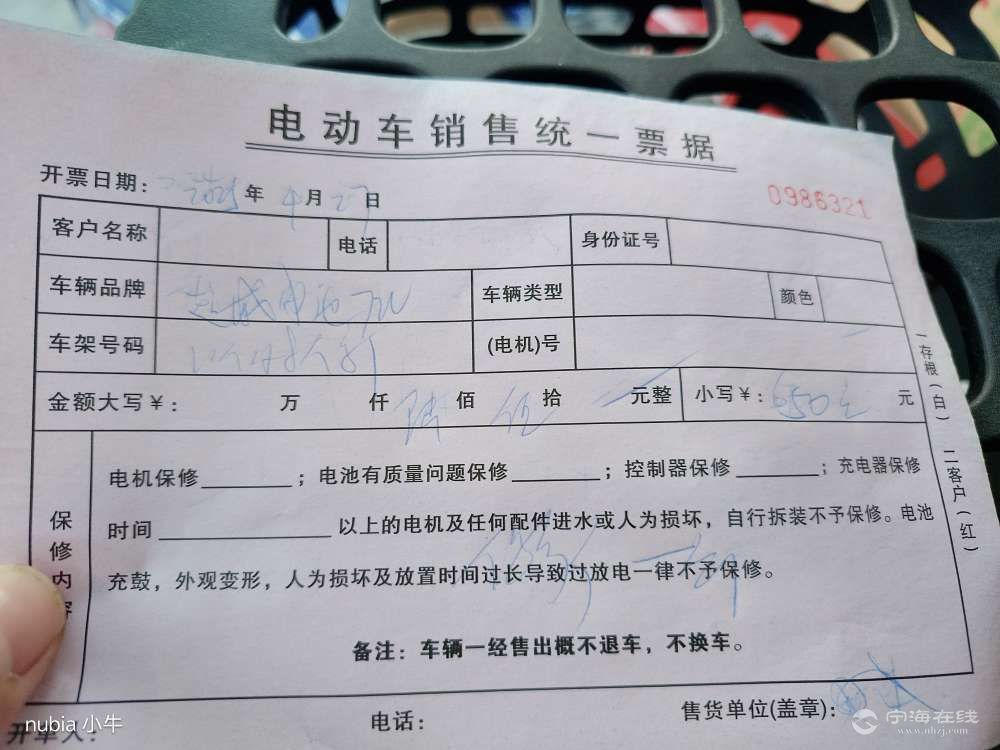 电动车销售统一票据
开票日期： 年 4 月 27 日
0986321
客户名称 电话 身份证号
车辆品牌 超威电池 车辆类型 颜色
车架号码 (电机)号
金额大写￥： 万 仟 陆 佰 伍 拾 元整 小写￥： 650元 元
保修内容
电机保修______；电池有质量问题保修______；控制器保修______；充电器保修
时间____________以上的电机及任何配件进水或人为损坏，自行拆装不予保修。电池
充鼓，外观变形，人为损坏及放置时间过长导致过放电一律不予保修。
备注：车辆一经售出概不退车，不换车。
一存根(白) 二客户(红)
开单人： 电话： 售货单位(盖章)：
nubia 小牛
宁海在线
www.nhzj.com